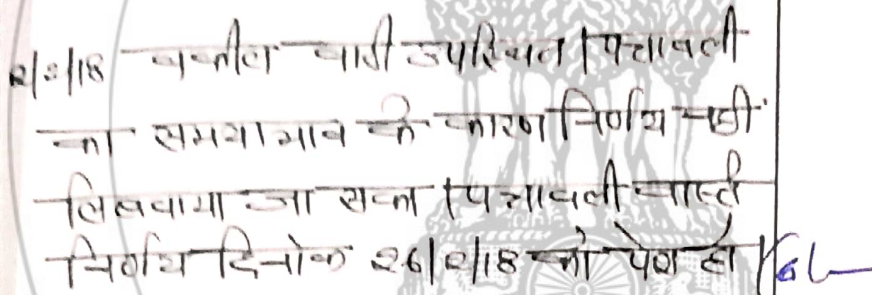 2/2/18 वकील वादी उपस्थित। पत्रावली
का समयाभाव के कारण निर्णय नहीं
लिखवाया जा सका। पत्रावली वास्ते
निर्णय दिनांक 26/2/18 को पेश हो।